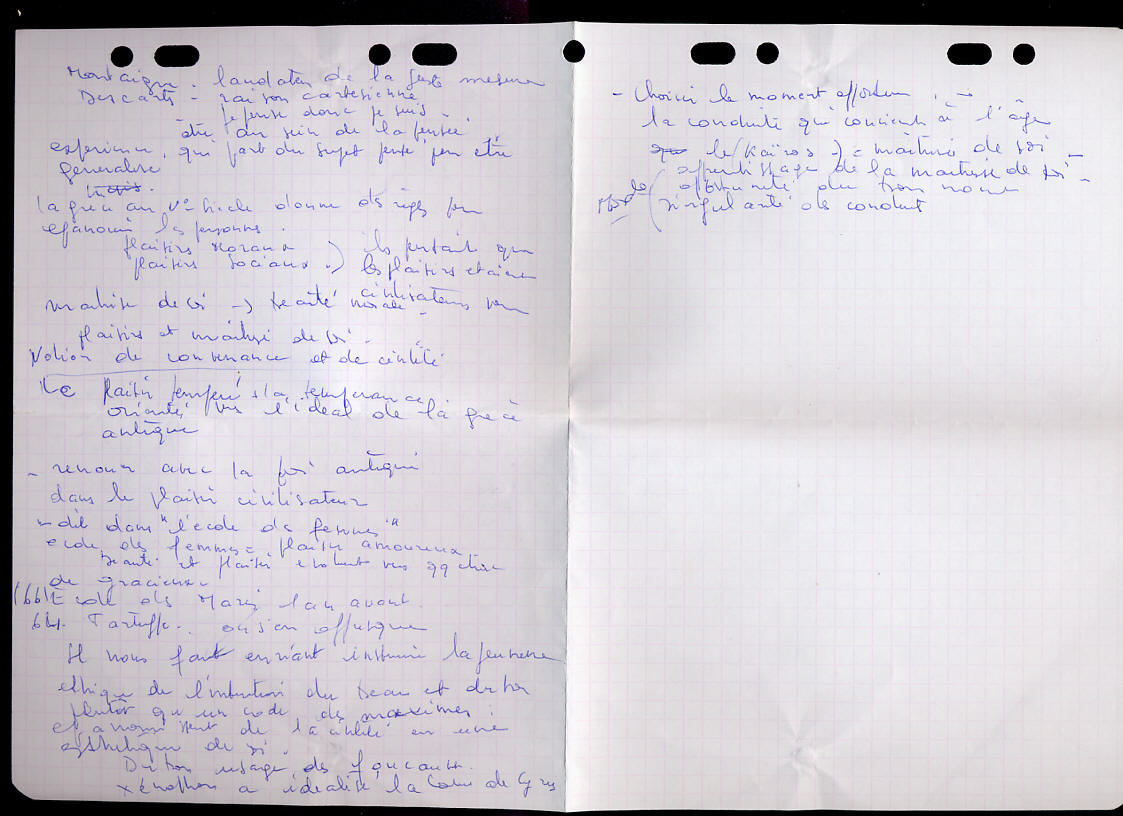 Montaigne. laudateur de la juste mesure
Descartes - raison cartésienne
- je pense donc je suis -
être au sein de la pensée
expérience, qui part du sujet pensé, peu être
généralisé
la grèce au Vº siècle donne des règles pour
épanouir les personnes.
plaisirs Moraux ) ils pensait que
plaisirs Sociaux .) les plaisirs étaient
civilisateurs
maîtrise de soi -> beauté morale -
plaisirs et maîtrise de soi -
Notion de convenance et de civilité
le plaisir tempéré, la tempérance
orientés vers l'idéal de la grèce
antique
- renoue avec la foi antique
dans le plaisir civilisateur
- dit dans "l'école des femmes"
école des femmes = plaisir amoureux
beauté et plaisir évoluent vers qq chose
de gracieux.
(661 Ecole des Maris 1 an avant.
64. Tartuffe. on s'en offusque
Il nous faut en riant instruire la jeunesse
éthique de l'intuition du beau et du bon
plutôt qu'un code des maximes :
épanouissement de la civilité en une
esthétique de soi.
Du bon usage des
Xénophon a idéalisé la Cour de Cyrus
- Choisir le moment opportun . ->
la conduite qui convient à l'âge
le (Kaïros -) = maîtrise de soi -
apprentissage de la maîtrise de soi -
opportunité du bon
singularité des conduit